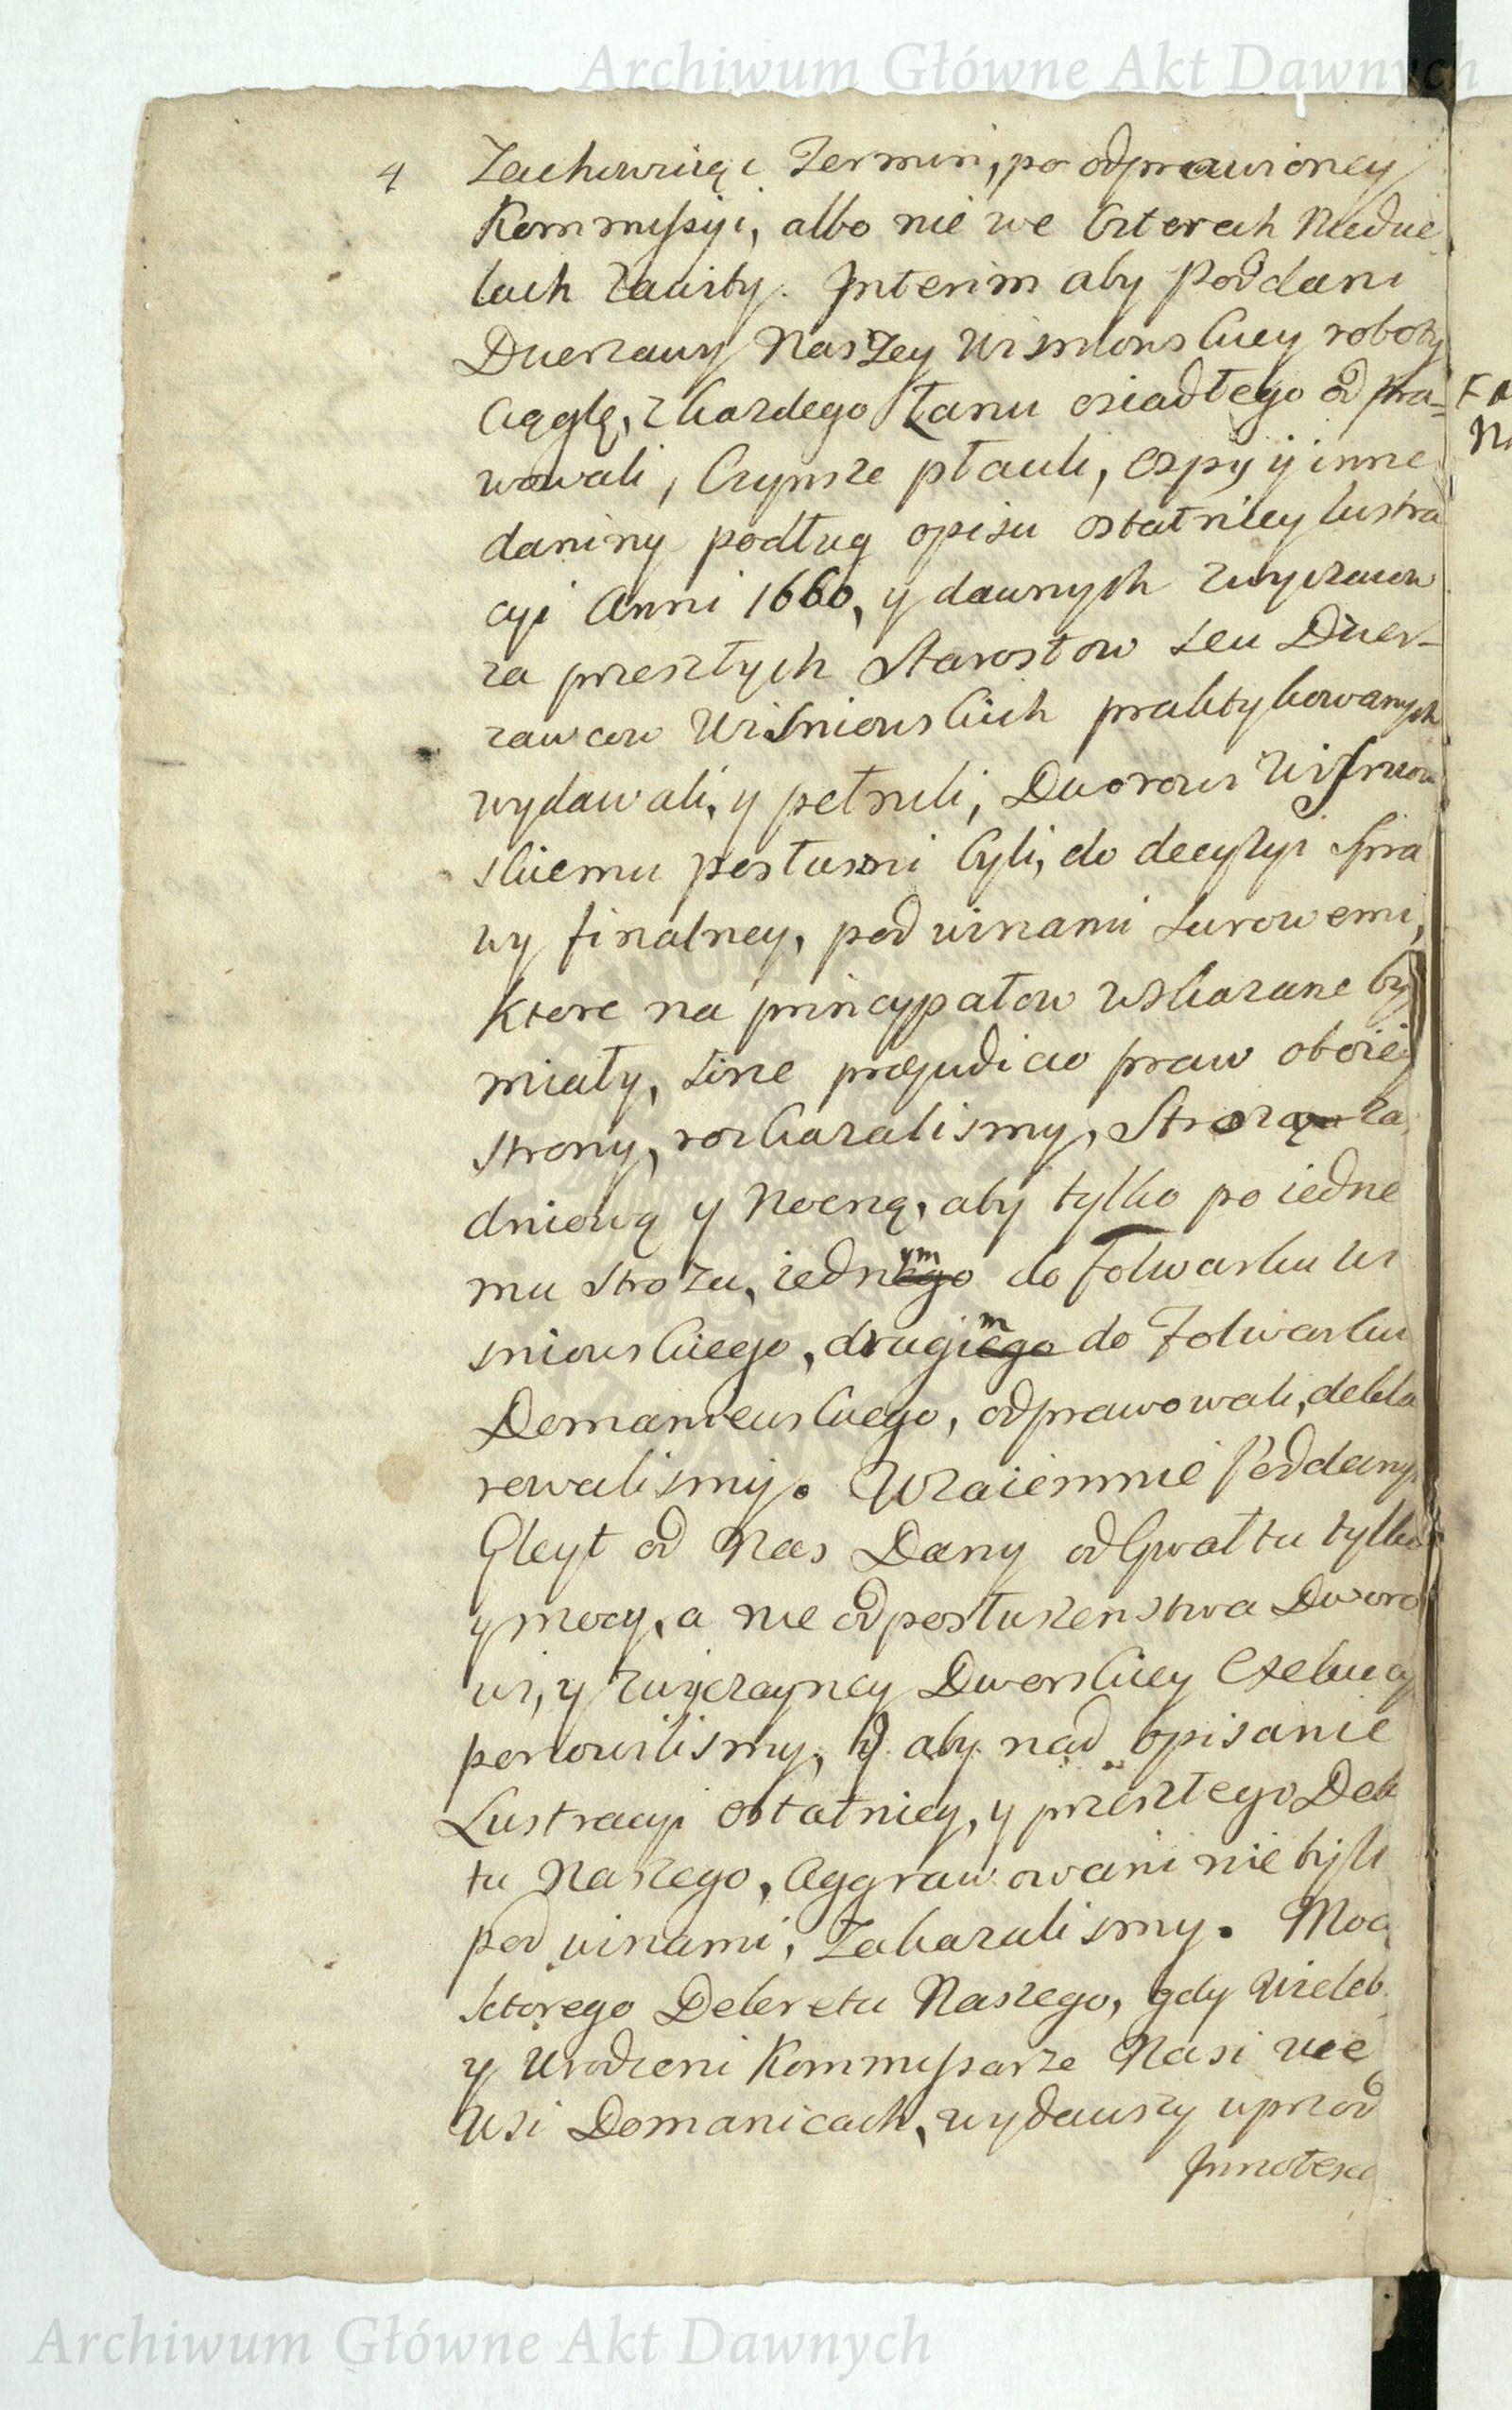 Archiwum Główne Akt Dawnych
4
Zachowuiąc Termin, po odprawioney
Kommissyi, albo nie we Czterech Niedzie
lach zawity. Interim aby Poddani
Dzierzawy Naszey Wisniowskiey roboty
Ciągłę, z kazdego Łanu osiadłego odpra=
wowali, Czynsze płacili, Ospy y inne
daniny podług opisu ostatniey lustra
cyi Anni 1660, y dawnych zwyczaiow
za przeszłych Starostow seu Dzier-
zawcow Wisniowskich praktykowanych
wydawali, y pełnili, Dworowi Wisniow
skiemu posłuszni byli, do decyzyi Spra
wy finalney, pod winami surowemi,
ktore na pryncypałow wskazane by
miały, sine præjudicio praw oboiey
strony, rozkazalismy, Strozą za
dniową y Nocną, aby tylko po iedne
mu Strozu, iednym do Folwarku Wi
sniowskiego, drugim do Folwarku
Domaniewskiego, odprawowali, dekla
rowalismy. Wzaiemnie Poddanym
Gleyt od Nas Dany od Gwałtu tylko
y mocy, a nie od posłuszenstwa Dworo
wi, y zwyczayney Dworskiey Exekucyi
ponowilismy, y aby nad opisanie
Lustracyi ostatniey, y przeszłego Dek
tu Naszego, Aggrawowani nie byli
pod winami, Zakazalismy. Mocą
ktorego Dekretu Naszego, gdy Wieleb.
y Urodzeni Kommissarze Nasi we
Wsi Domanicach, wydawszy uprzod
Innotesc
Archiwum Główne Akt Dawnych